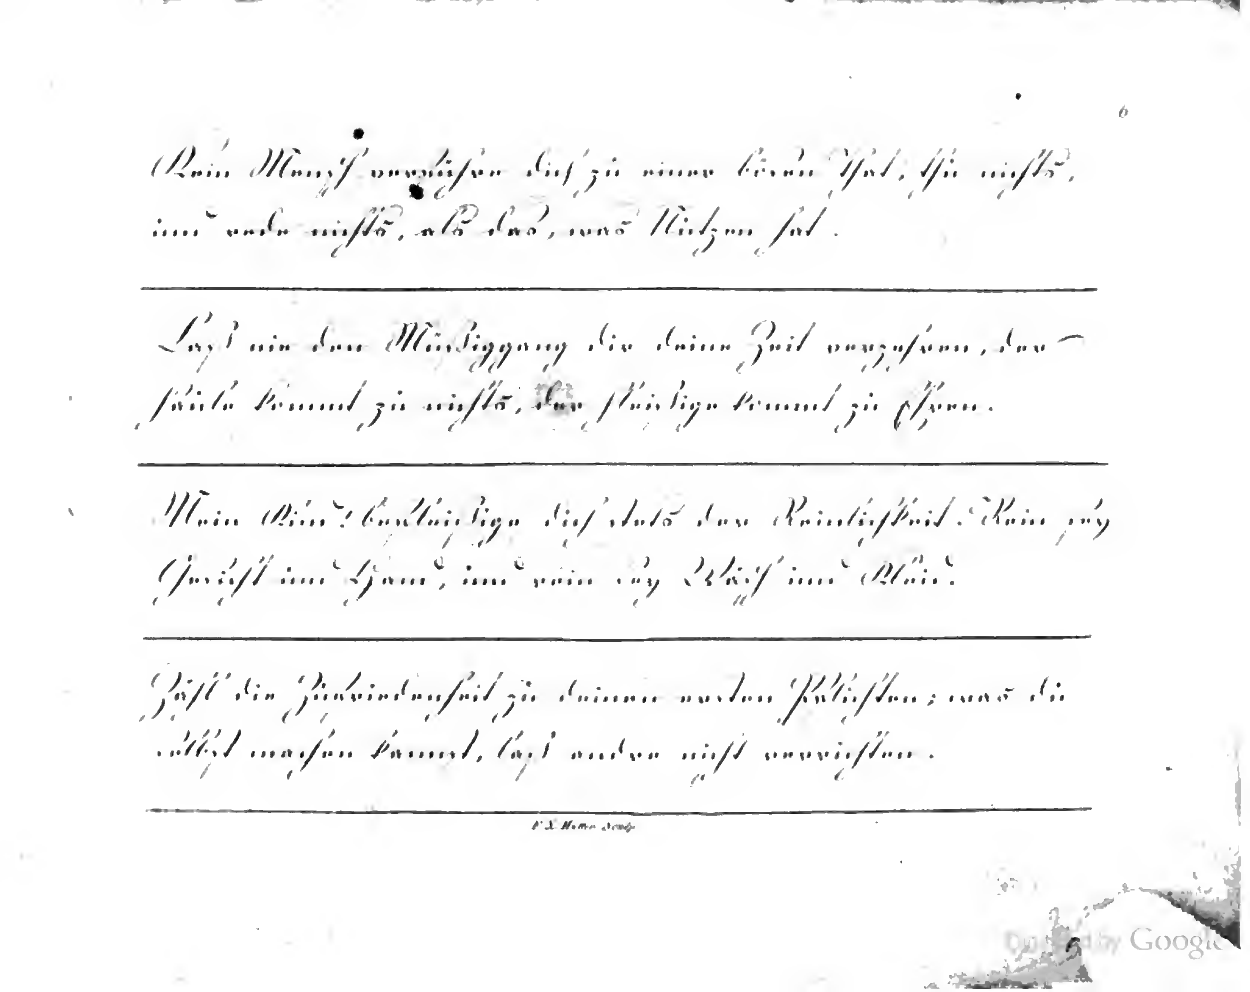 6
Kein Mensch verführe dich zu einer bösen That; thu nichts,
und rede nichts, als das, was Nutzen hat.
Laß nie den Müßiggang dir deine Zeit verzehren, der
faule kommt zu nichts, der fleißige kommt zu Ehren.
Mein Kind! befleißige dich stets der Reinlichkeit! Rein sey
Gesicht und Hand, und rein sey Wäsch und Kleid.
Zähl die Zufriedenheit zu deinen ersten Pflichten; was du
selbst machen kannst, laß andre nicht verrichten.
Digitized by Google